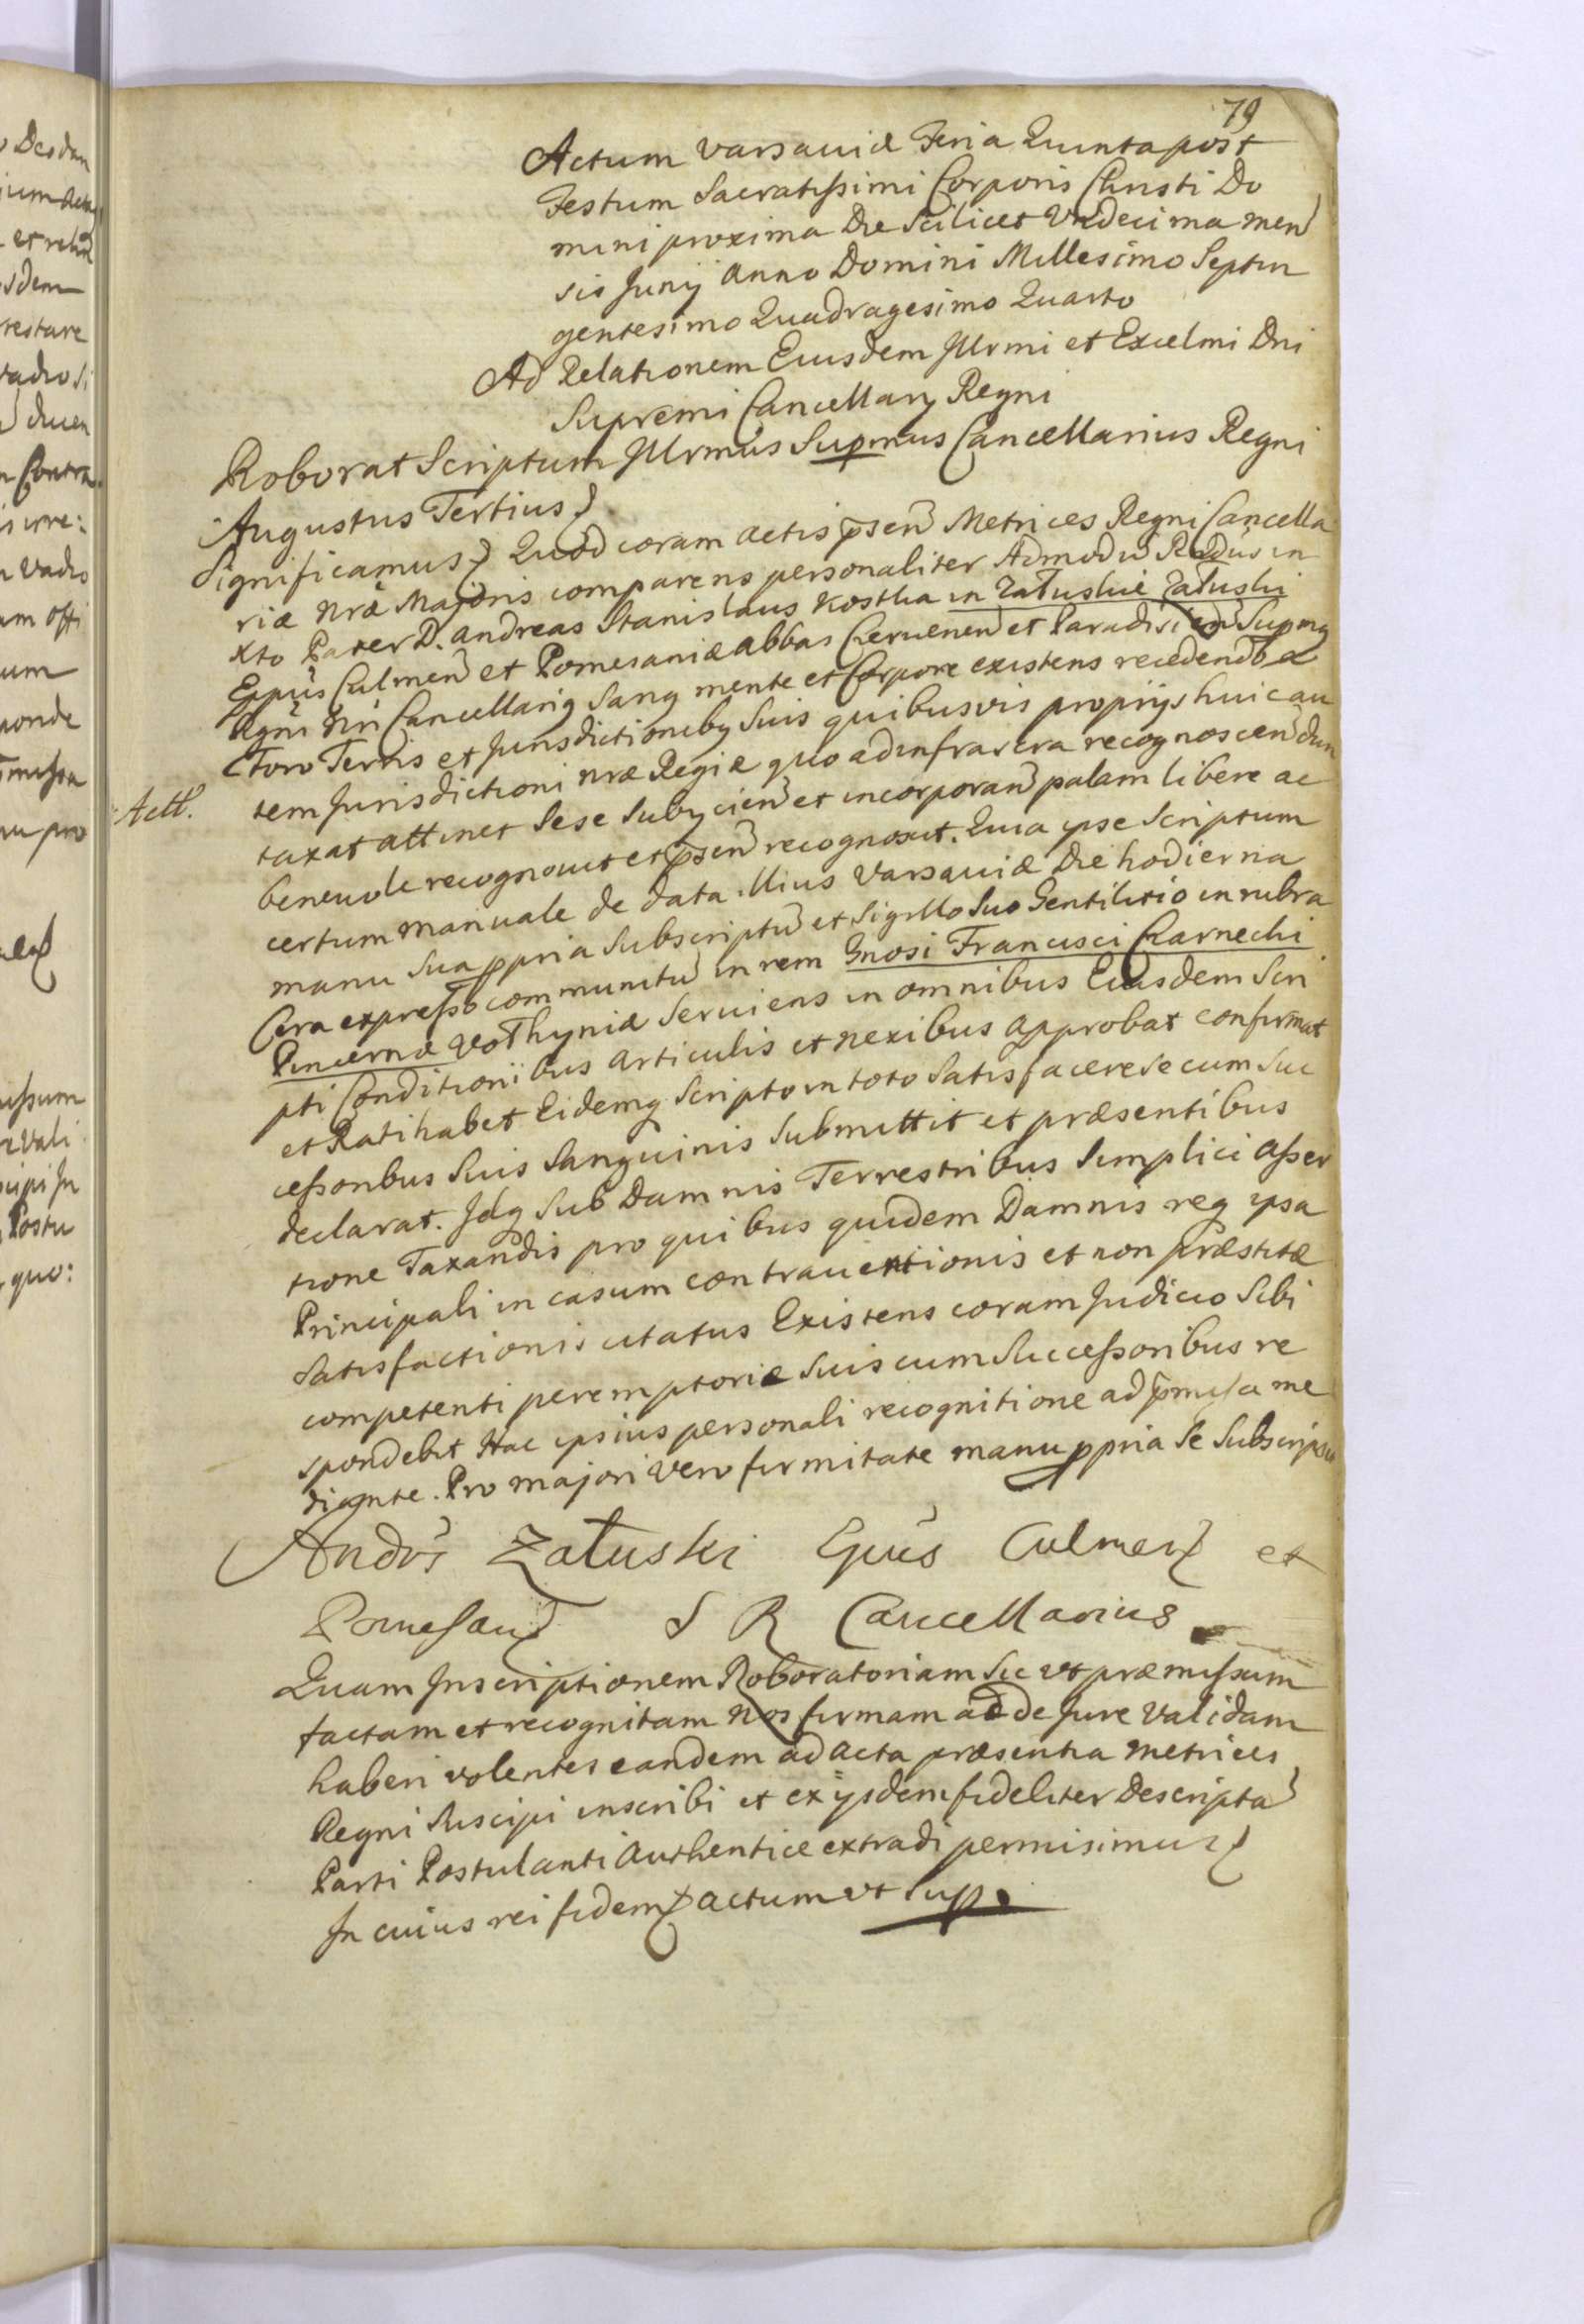 79
Actum Varsaviæ Feria Quinta post
Festum Sacratissimi Corporis Christi Do
mini proxima Die Scilicet Undecima men
sis Junij Anno Domini Millesimo Septin
gentesimo Quadragesimo Quarto
Ad Relationem Eiusdem Illrmi et Excelmi Dni
Supremi Cancellarij Regni
Roborat Scriptum Illrmus Supmus Cancellarius Regni
Augustus Tertius
Significamus Quod coram actis psen Metrices Regni Cancella
riæ nræ Majoris comparens personaliter Admodu Rndus in
Xto Pater D. Andreas Stanislaus Kostka in Załuskie Załuski
Eppus Culmen et Pomesaniæ Abbas Cervenen et Paradisien Supmq
Rgni nri Cancellariq Sanq mente et Corpore existens recedendo a
Foro Terris et Jurisdictionebq Suis quibusvis proprijs huic au
tem Jurisdictioni nræ Regiæ quo ad infrascra recognoscen dun
Actt. taxat attinet Sese Subijcien et incorporan palam libere ac
benevole recognovit et psen recognoscit. Quia ipse Scriptum
certum manuale de data illius Varsaviæ Die hodierna
manu Sua ppria Subscriptu et Sigillo Suo Gentilitio in rubra
Cera expresso communitu in rem Gnosi Francisci Czarnecki
Pincernæ Vołhyniæ Serviens in omnibus Eiusdem Scri
pti Conditionibus articulis et nexibus approbat confirmat
et Ratihabet Eidemq Scripto in toto Satisfacere Se cum Suc
cessoribus Suis Sanguinis Submittit et præsentibus
declarat. Idq Sub Damnis Terrestribus Simplici Asser
tione Taxandis pro quibus quidem Damnis req ipsa
Principali in casum contraventionis et non præstitæ
Satisfactionis citatus Existens coram Judicio Sibi
competenti peremptorie Suis cum Successoribus re
spondebit Hac ipsius personali recognitione ad pmissa me
diante. Pro majori vero firmitate manu ppria Se Subscripsit
Andrs Załuski Epus Culmen et
Pomesan S R Cancellarius
Quam Inscriptionem Roboratoriam Sic ut præmissum
factam et recognitam Nos firmam ac de Jure Validam
haberi volentes eandem ad Acta præsentia Metrices
Regni Suscipi inscribi et ex ijsdem fideliter Descripta
Parti Postulanti Authentice extradi permisimus
In cuius rei fidem Actum ut Sup.